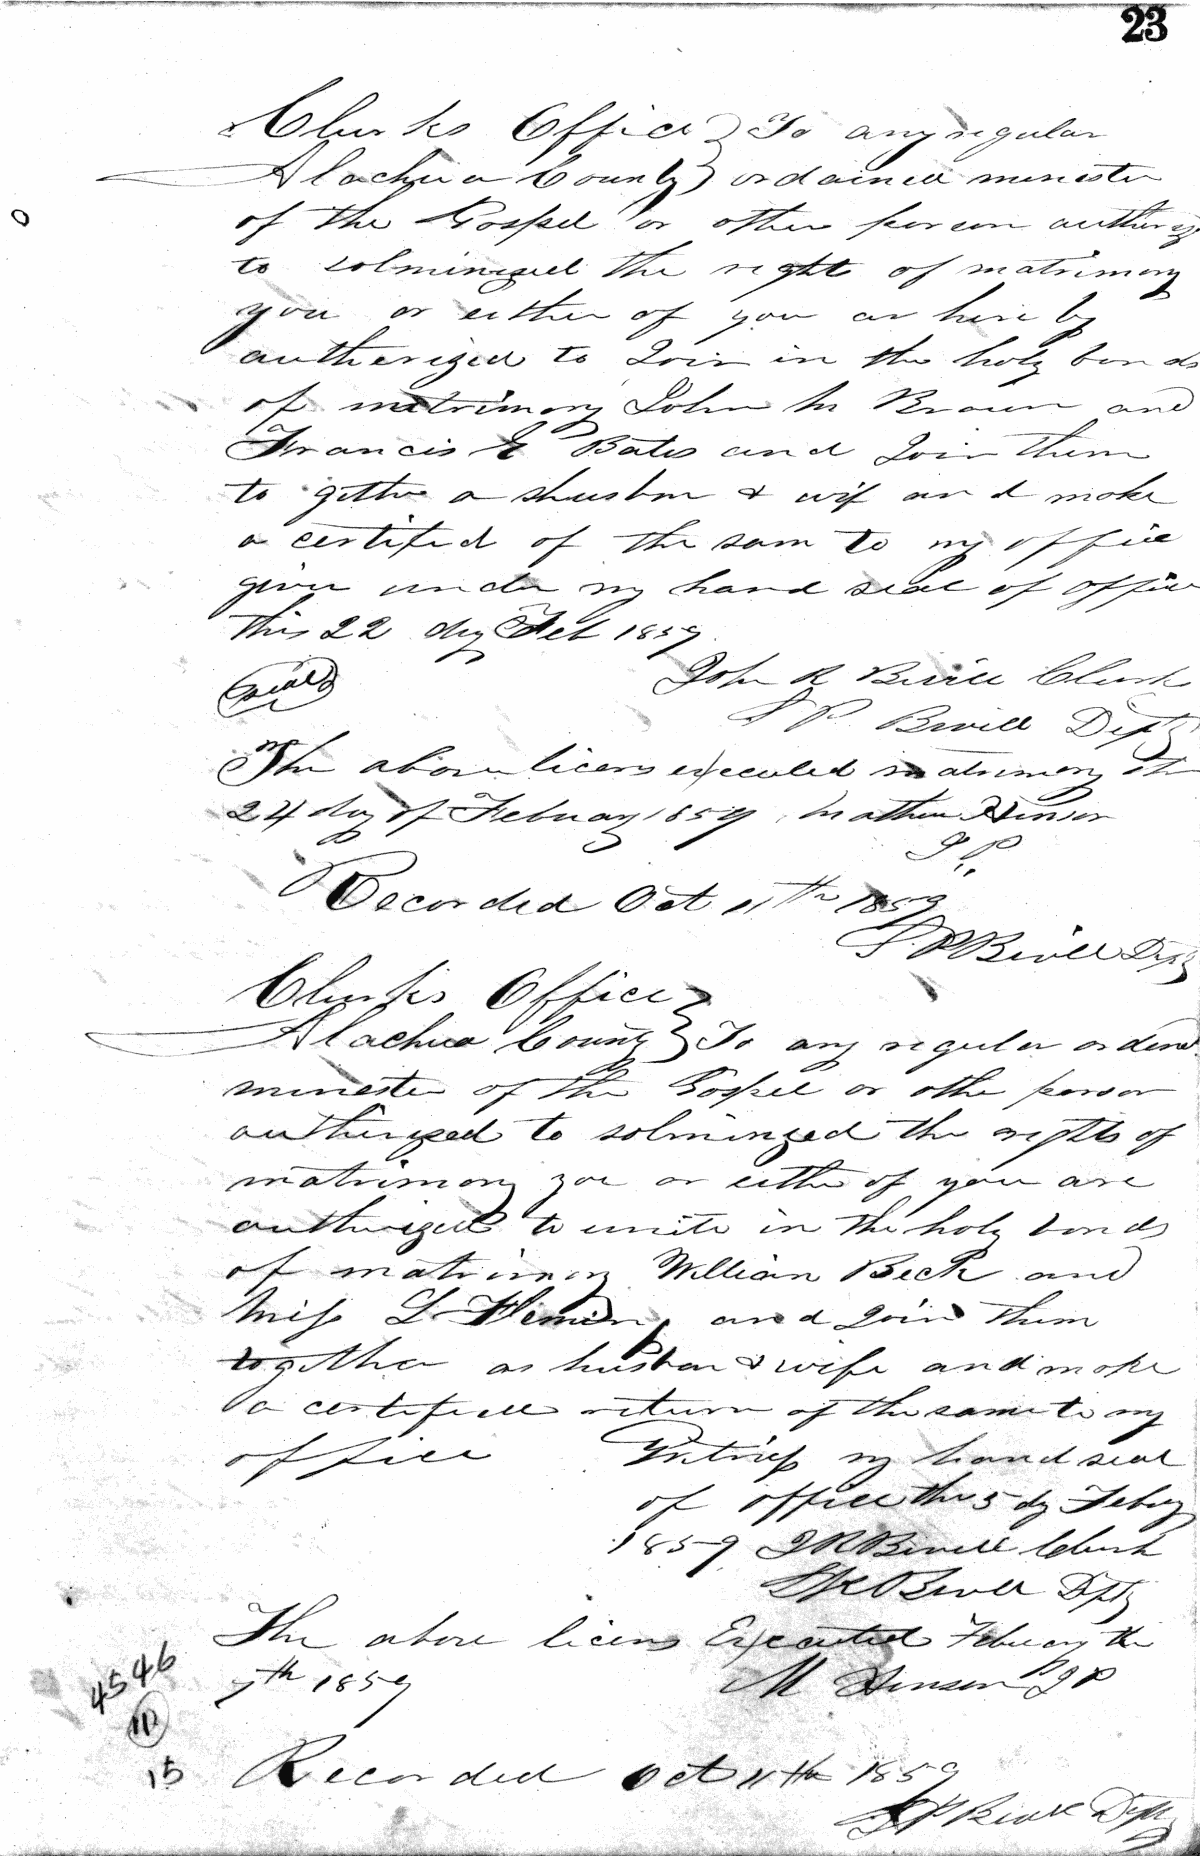 23
Clerks Office } To any regular
Alachua County } ordained minister
of the Gospel or other person authoriz
to solminized the right of matrimony
you or either of you ar here by
autherized to Join in the holy bonds
of matrimony John M Brown and
Francis E Bates and Join them
to gether a shusban & wif and make
a certified of the sam to my office
given under my hand seal of office
this 22 dy Feb 1859
Seal
John R Bevill Clerk
S P. Bevill Depty
The above licens executed matrimony the
24 day of Febuary 1859 Mathew Hinson
J P.
Recorded Oct 11th 1859
S. P Bevill Depty
Clerks Office }
Alachua County } To any regular ordend
minester of the Gospel or othe person
authirized to solminzed the rights of
matrimony you or either of you are
authirized to unite in the holy bonds
of matrimony William Beck and
Miss L and Join them
together as husban & wife and make
a certified return of the same to my
office Witness my hand seal
of office the 5 dy Febuy
1859 J R Bevill Clerk
Bevill Dpty
The above licens Executed Febuary the
7th 1859 M Hinson J P
4546
15 Recorded Oct 11th 1859
S P Bevill Depty